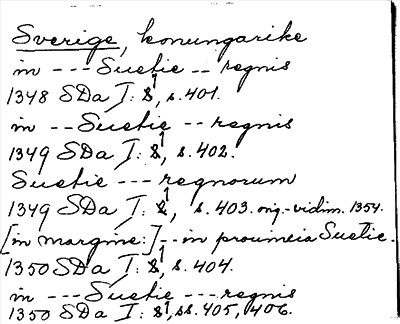 Sverige, konungarike
in --- Suetie -- regnis
1348 SDa I: 8, s. 401.
in -- Suetie -- regnis
1349 SDa I: 8, s. 402.
Suetie --- regnorum
1349 SDa I: 8, s. 403. orig.-vidim. 1354.
[in margine:] -- in prouincia Suetie.
1350 SDa I: 8, s. 404.
in --- Suetie --- regnis
1350 SDa I: 8, ss. 405, 406.